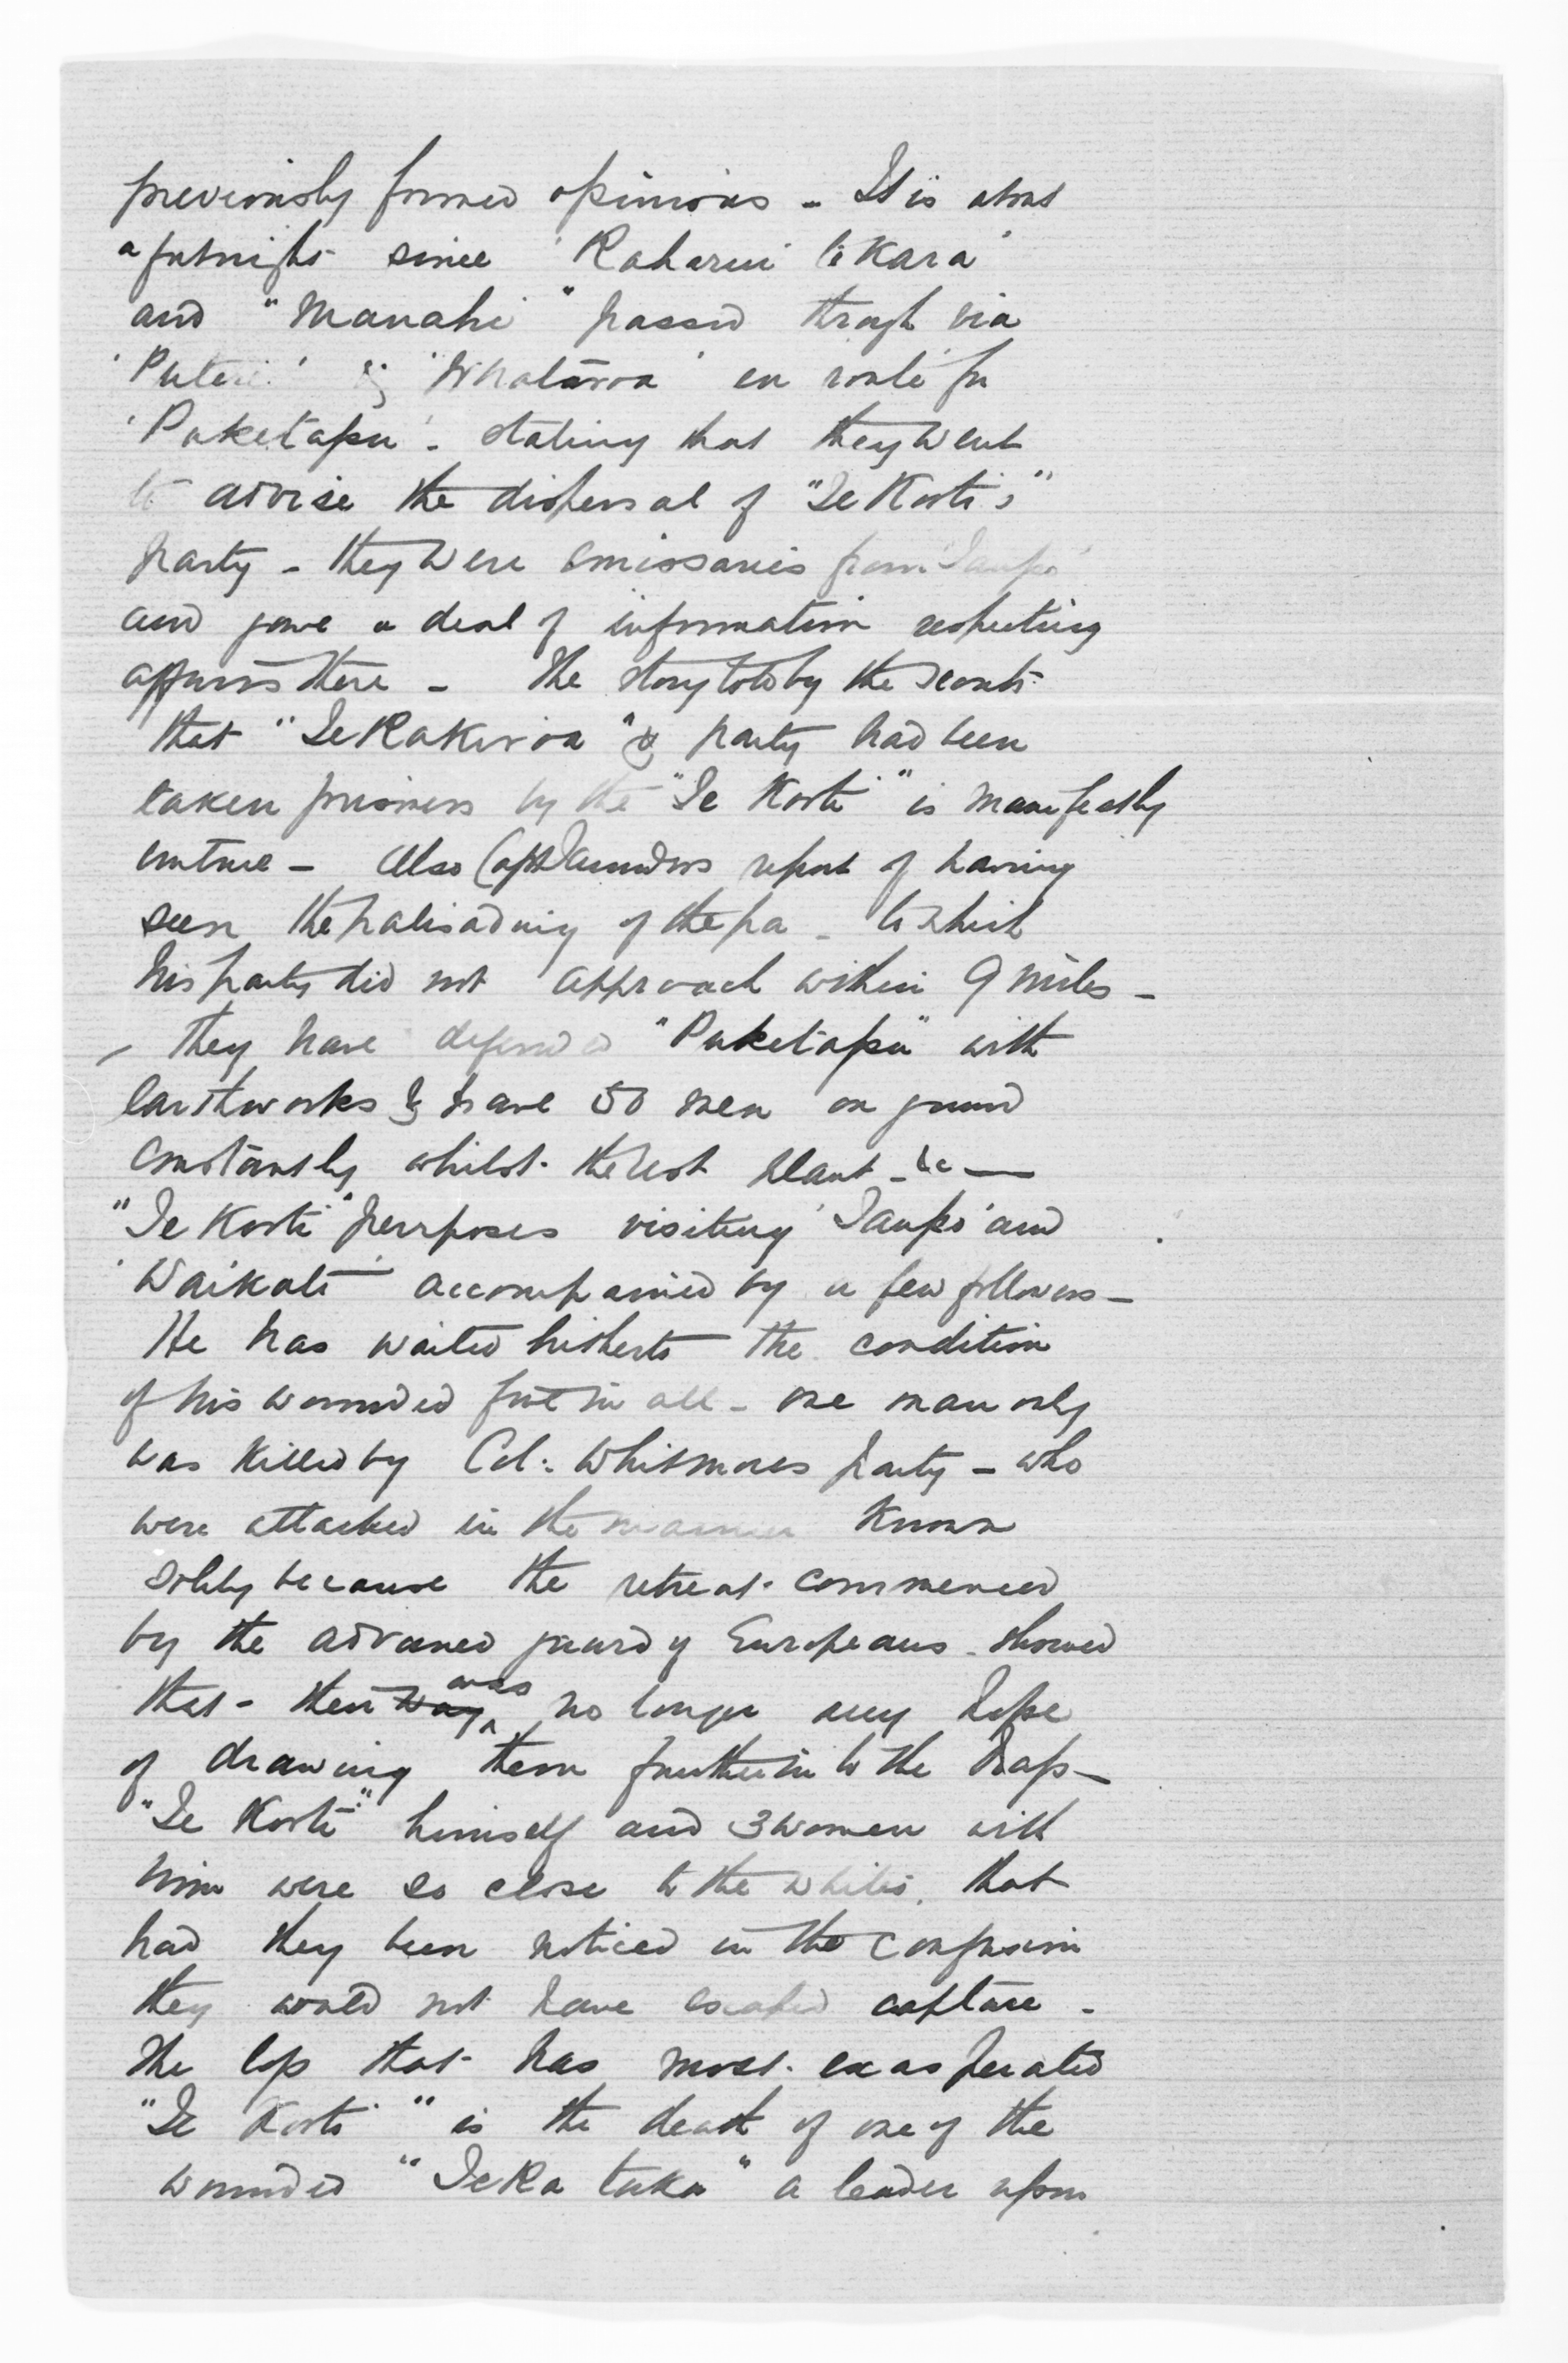 previously formed opinions - It is about
a fortnight since 'Raharui te Kara'
and "Manahi" passed through via
'Putere' & 'Whataroa' en route for
'Puketapu' - stating that they went
to advise the dispersal of "Te Kooti's"
party - they were emissaries from 'Taupo'
and gave a deal of information respecting
affairs there - The story told by the scouts
that "Te Rakiroa" & party had been
taken prisoners by the "Te Kooti" is manifestly
untrue - Also Capt Saunders report of having
seen the palisading of the pa - to which
his party did not approach within 9 miles -
- They have defended "Puketapu" with
Earthworks & have 50 men on guard
constantly whilst the rest plant - &c —
"Te Kooti" purposes visiting 'Taupo' and
'Waikato' accompanied by a few followers -
He has waited hitherto the condition
of his wounded five in all - one man only
was killed by Col: Whitmores party - who
were attacked in the manner known
solely because the retreat commenced
by the advanced guard of Europeans - showed
that - there was no longer any hope
of drawing them further in to the trap -
"Te Kooti" himself and 3 women with
him were so close to the whites, that
had they been noticed in the confusion
they would not have escaped capture -
The loss that has most exasperated
"Te Kooti" is the death of one of the
wounded "Te Ra tuku" a leader upon